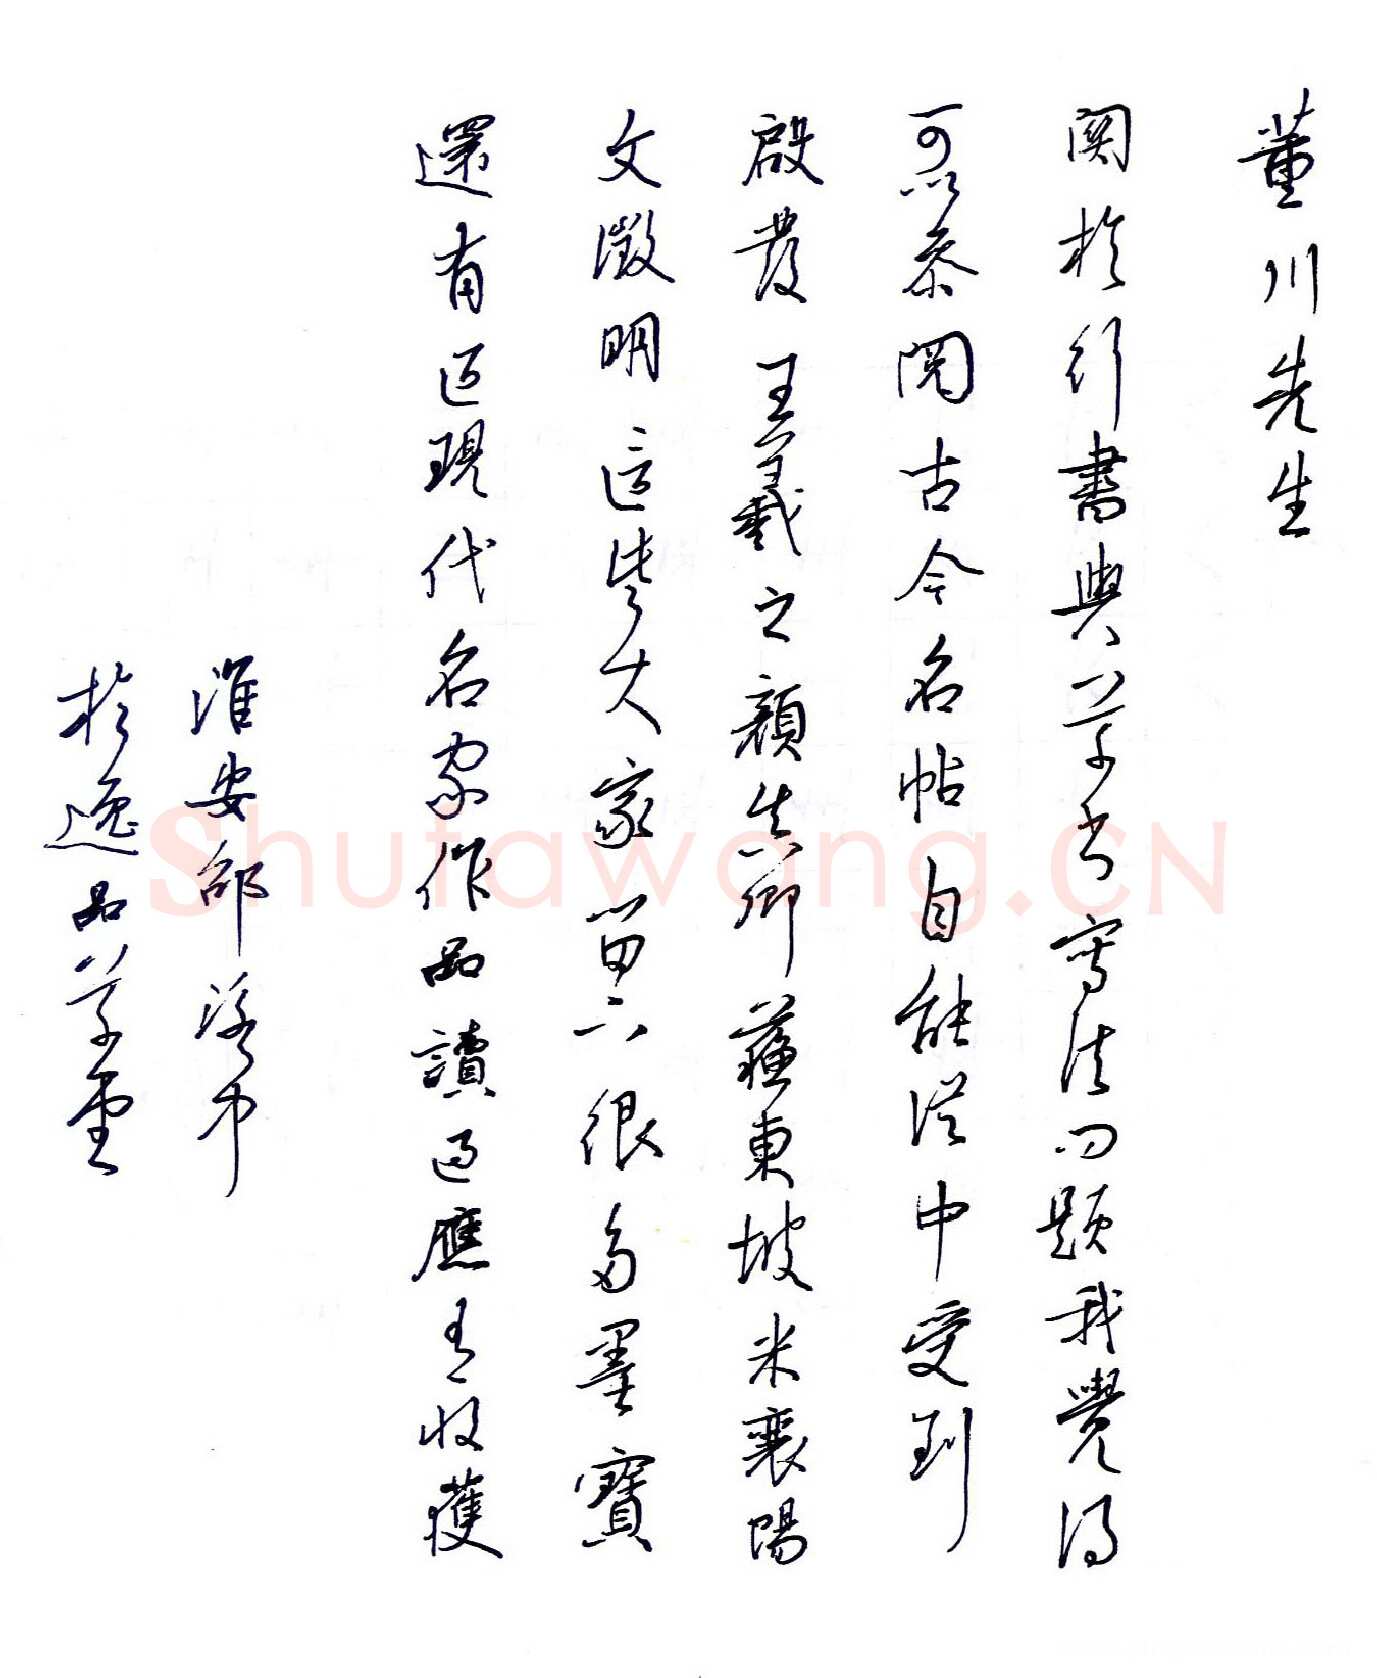 董川先生
関於行書與草书寫法问題我覺得
可以参閱古今名帖自能從中受到
啟發王羲之顏真卿蘇東坡米襄陽
文徵明這些大家留下很多墨寶
還有近現代名家作品讀過應有收獲
淮安邵
於逸品草堂
Shufawang.CN